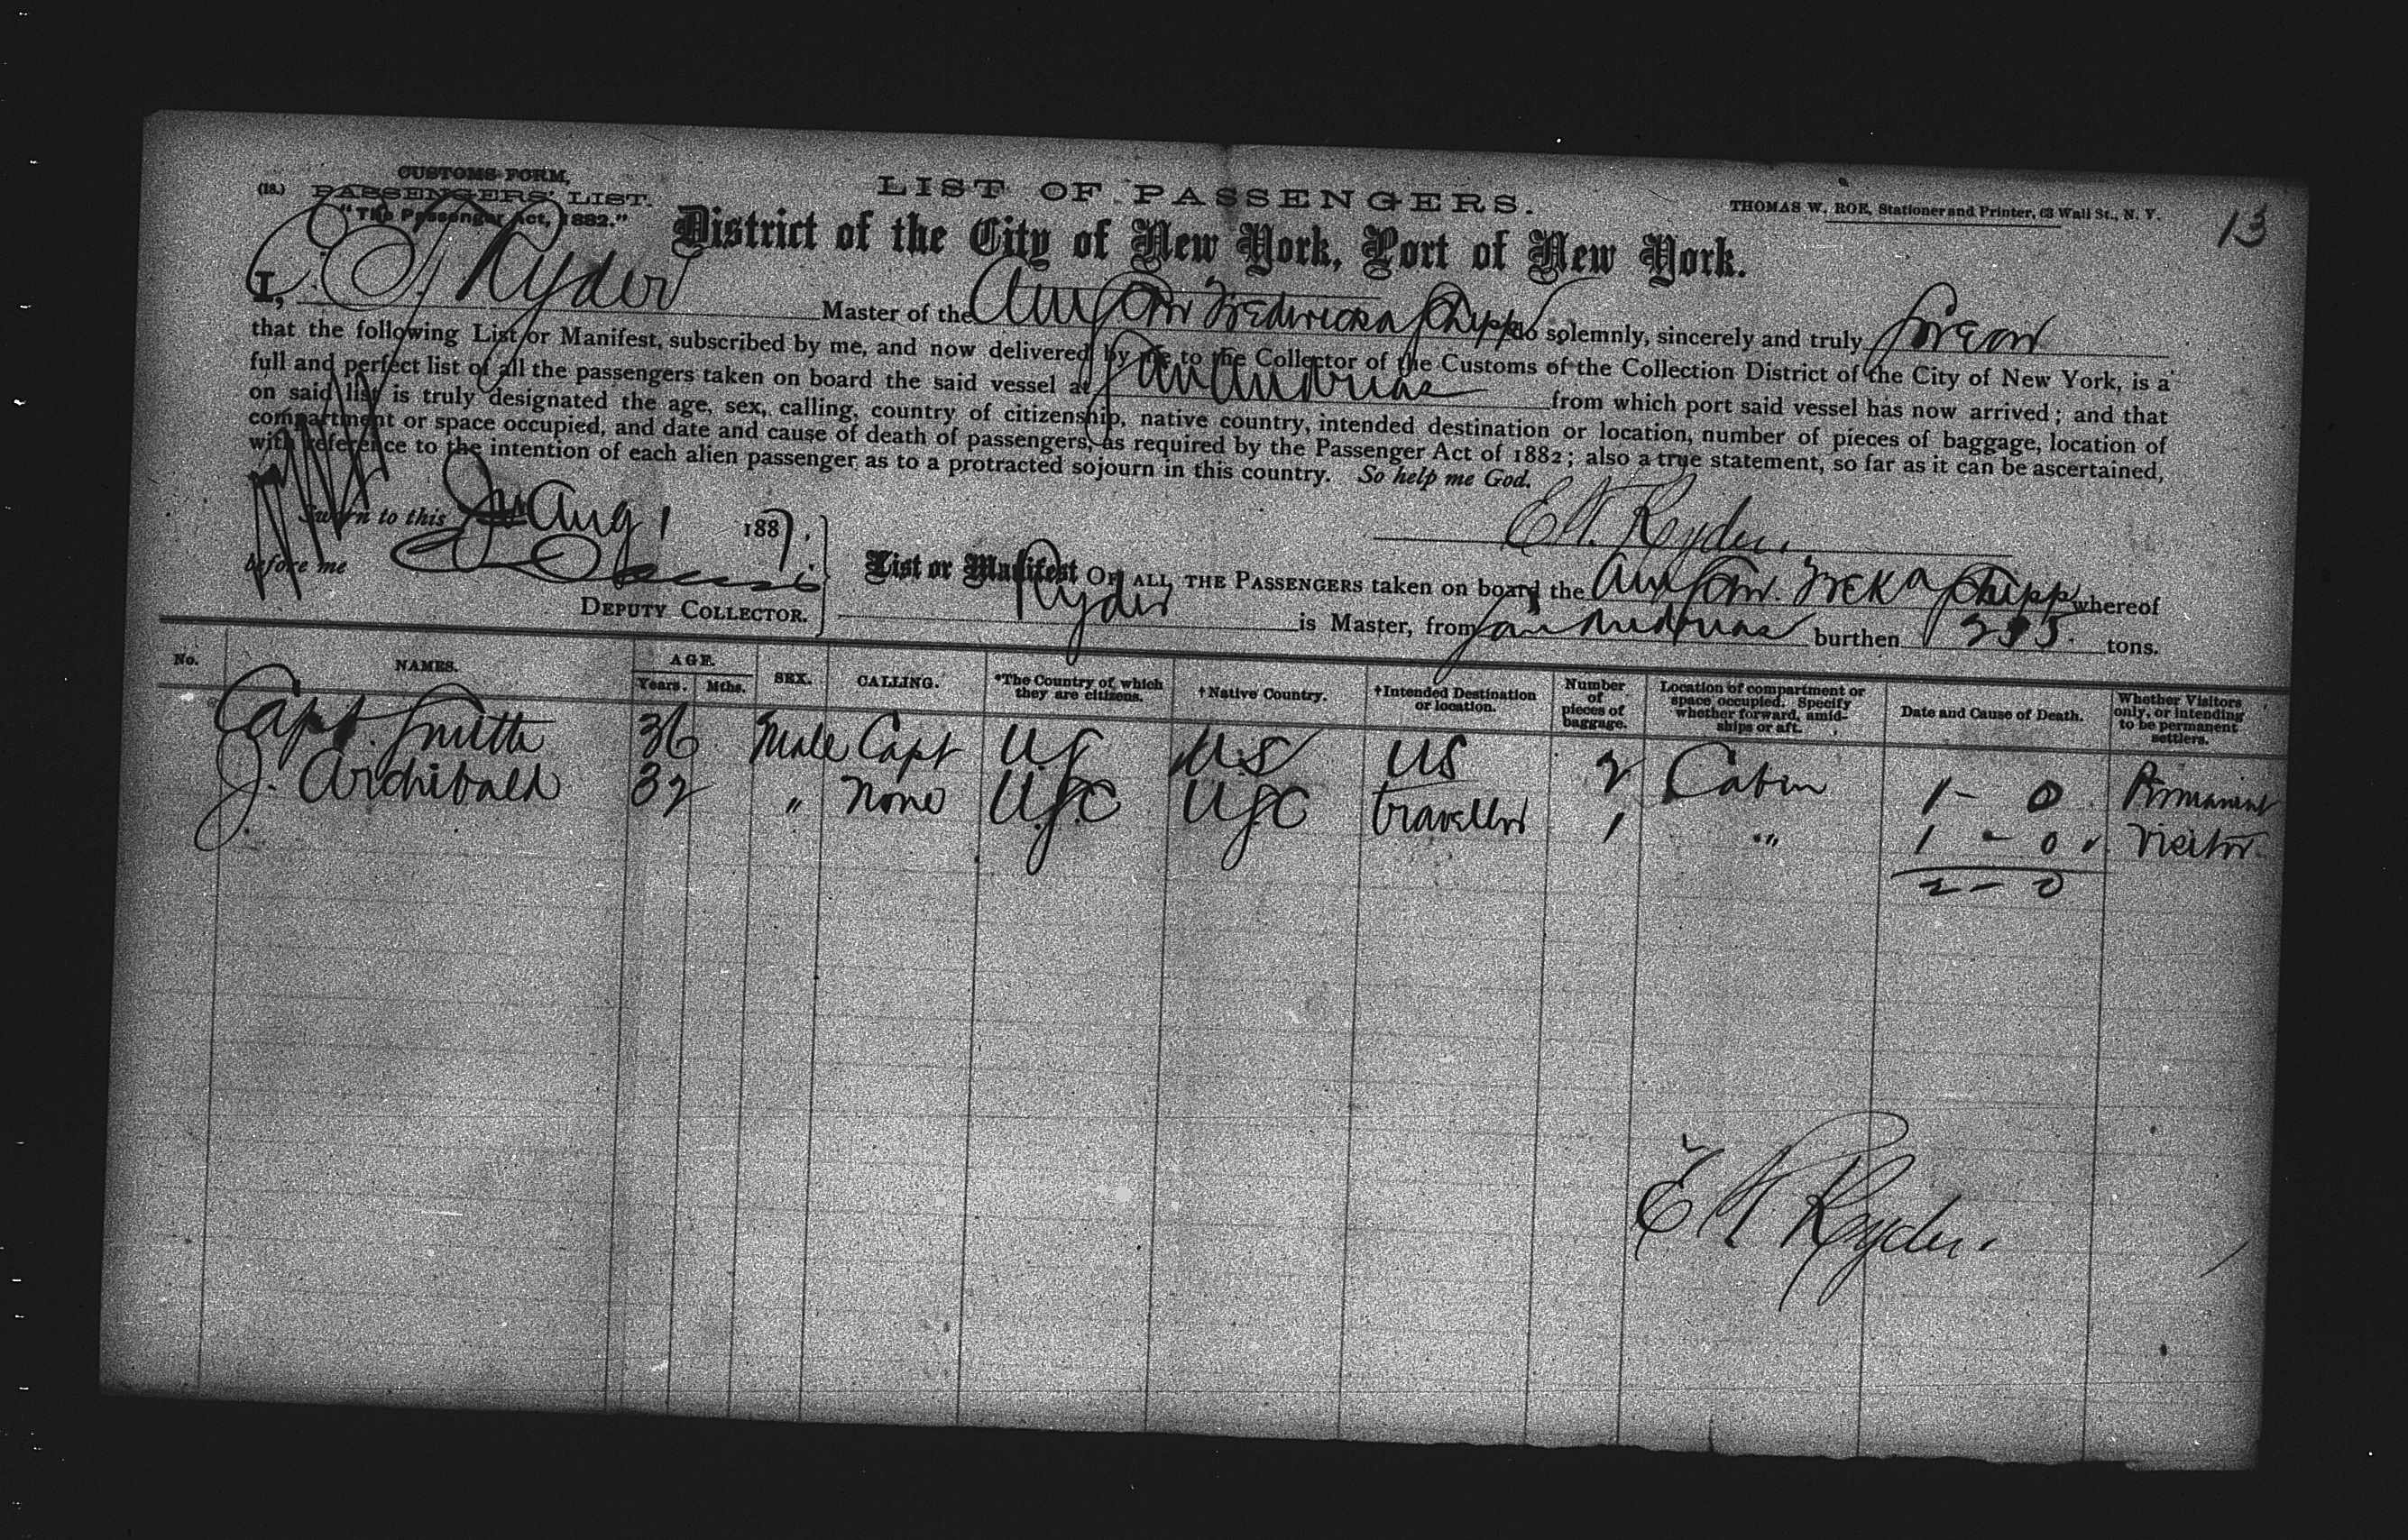 CUSTOMS FORM,
(18.) PASSENGERS' LIST.
"The Passenger Act, 1882."
LIST OF PASSENGERS.
THOMAS W. ROE, Stationer and Printer, 63 Wall St., N. Y.
13
District of the City of New York, Port of New York.
I, Ryder Master of the Am Fredericka Schepp do solemnly, sincerely and truly swear
that the following List or Manifest, subscribed by me, and now delivered by me to the Collector of the Customs of the Collection District of the City of New York, is a
full and perfect list of all the passengers taken on board the said vessel at San Andreas from which port said vessel has now arrived; and that
on said list is truly designated the age, sex, calling, country of citizenship, native country, intended destination or location, number of pieces of baggage, location of
compartment or space occupied, and date and cause of death of passengers, as required by the Passenger Act of 1882; also a true statement, so far as it can be ascertained,
with reference to the intention of each alien passenger as to a protracted sojourn in this country. So help me God.
Sworn to this Aug 1 1887.
E. W. Ryder.
before me
DEPUTY COLLECTOR.
List or Manifest OF ALL THE PASSENGERS taken on board the Am Schr. Schepp whereof
Ryder is Master, from San Andreas burthen tons.
No. NAMES. AGE. Years. Mths. SEX. CALLING. *The Country of which they are citizens. †Native Country. †Intended Destination or location. Number of pieces of baggage. Location of compartment or space occupied. Specify whether forward, amidships or aft. Date and Cause of Death. Whether Visitors only, or intending to be permanent settlers.
Capt. Smith 36 Male Capt US U.S US 2 Cabin 1 - 0 Permanent
J. Archibald 32 " None traveller 1 " 1 - 0 Visitor
2 - 0
E W Ryder.